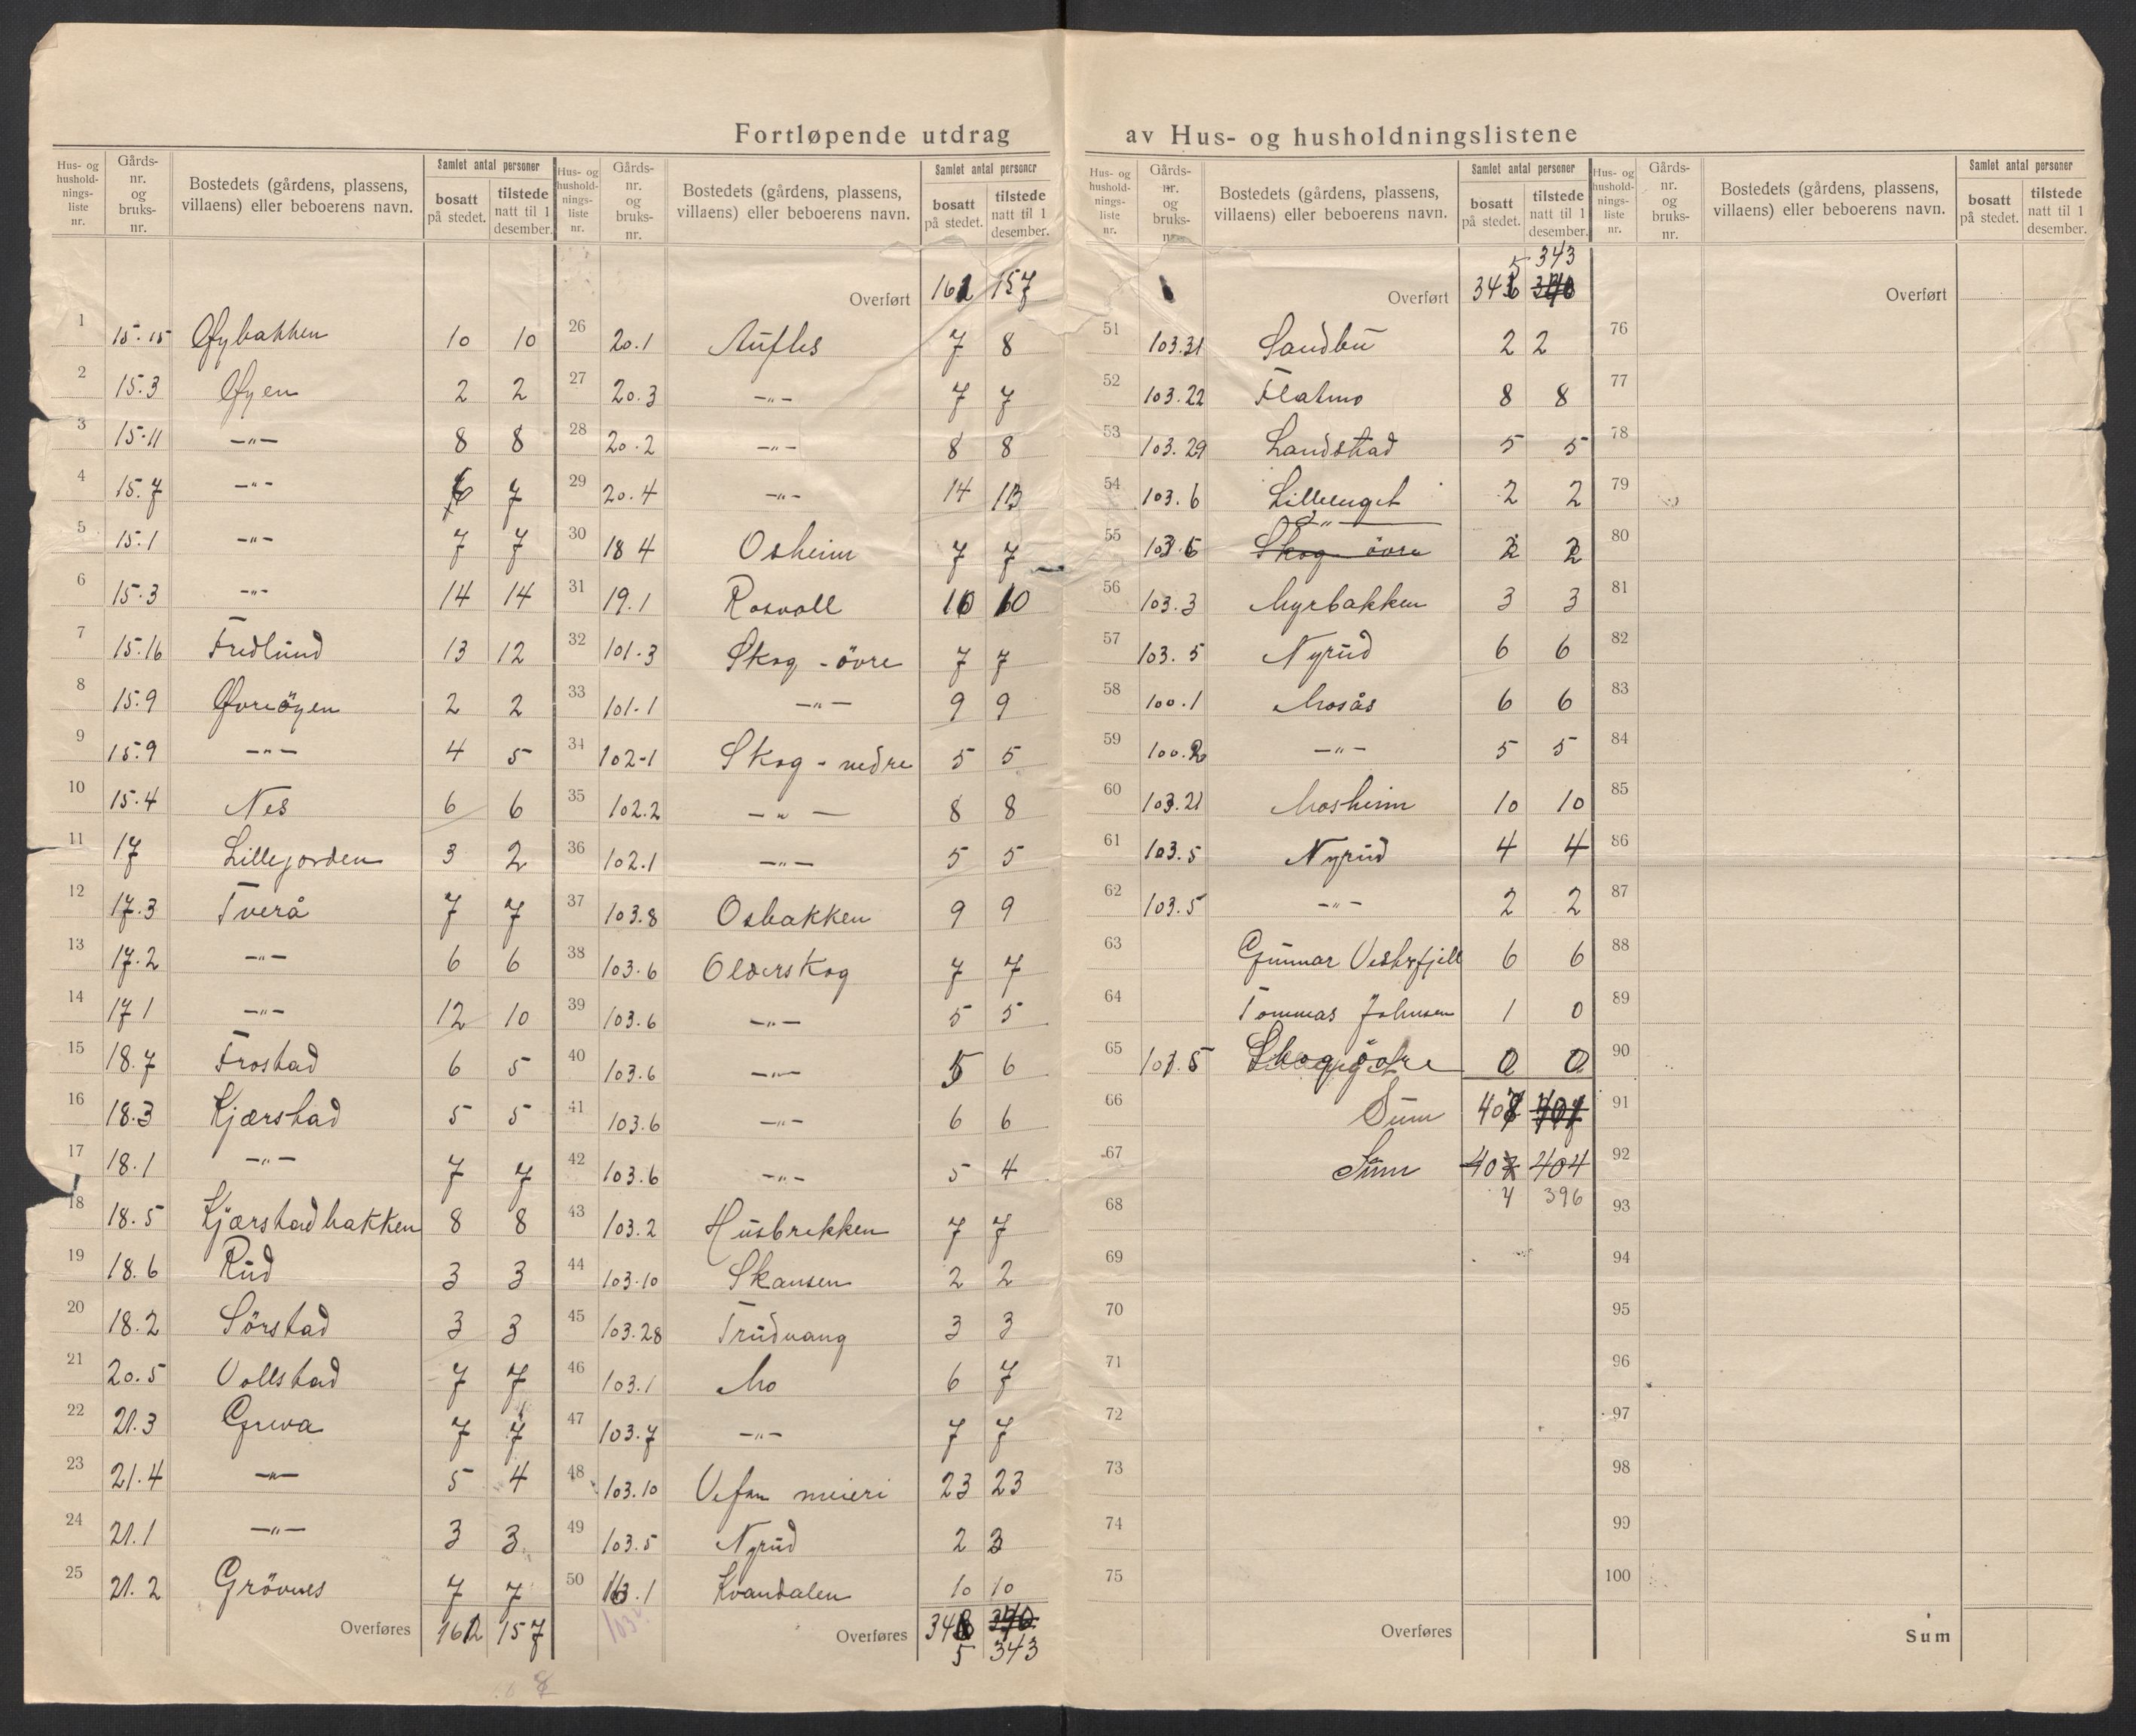 Fortløpende utdrag av Hus- og husholdningslistene
Hus- og hushold-nings-liste nr. Gårds-nr. og bruks-nr. Bostedets (gårdens, plassens, villaens) eller beboerens navn. Samlet antal personer bosatt på stedet. tilstede natt til 1 desember.
1 15.15 Øybakken 10 10
2 15.3 Øyen 2 2
3 15.11 —"— 8 8
4 15.7 —"— 6 7
5 15.1 —"— 7 7
6 15.3 —"— 14 14
7 15.16 Fredlund 13 12
8 15.9 Øvreöyen 2 2
9 15.9 —"— 4 5
10 15.4 Nes 6 6
11 17 Lillejorden 3 2
12 17.3 Tverå 7 7
13 17.2 —"— 6 6
14 17 1 —"— 12 10
15 18.7 Frostad 6 5
16 18.3 Kjærstad 5 5
17 18.1 —"— 7 7
18 18.5 Kjærstadbakken 8 8
19 18.6 Rud 3 3
20 18.2 Sörstad 3 3
21 20.5 Vollstad 7 7
22 21.3 Greva 7 7
23 21.4 —"— 5 4
24 21.1 —"— 3 3
25 21.2 Grövnes 7 7
Overføres 162 157
Hus- og hushold-nings-liste nr. Gårds-nr. og bruks-nr. Bostedets (gårdens, plassens, villaens) eller beboerens navn. Samlet antal personer bosatt på stedet. tilstede natt til 1 desember.
Overført 162 157
26 20.1 Aufles 7 8
27 20.3 —"— 7 7
28 20.2 —"— 8 8
29 20.4 —"— 14 13
30 18 4 Osheim 7 7
31 19.1 Rosvoll 10 10
32 101.3 Skog - övre 7 7
33 101.1 —"— 9 9
34 102-1 Skog - nedre 5 5
35 102.2 —"— 8 8
36 102.1 —"— 5 5
37 103.8 Osbakken 9 9
38 103.6 Olderskog 7 7
39 103.6 —"— 5 5
40 103.6 —"— 5 6
41 103.6 —"— 6 6
42 103.6 —"— 5 4
43 103.2 Husbrekken 7 7
44 103.10 Skansen 2 2
45 103.28 Trudvang 3 3
46 103.1 Mo 6 7
47 103.7 —"— 7 7
48 103.10 Vefsn meieri 23 23
49 103.5 Nyrud 2 3
50 103.1 Kvandalen 10 10
Overføres 348 340
5 343
Hus- og hushold-nings-liste nr. Gårds-nr. og bruks-nr. Bostedets (gårdens, plassens, villaens) eller beboerens navn. Samlet antal personer bosatt på stedet. tilstede natt til 1 desember.
5 343
Overført 346 340
51 103.31 Sandbu 2 2
52 103.22 Flatmo 8 8
53 103.29 Landstad 5 5
54 103.6 Lilleenget 2 2
—"—
55 103.6 Skog övre 2 2
56 103.3 Myrbakken 3 3
57 103.5 Nyrud 6 6
58 100.1 Mosås 6 6
59 100.2 —"— 5 5
60 103.21 Mosheim 10 10
61 103.5 Nyrud 4 4
62 103.5 —"— 2 2
63 Gunnar Vesterfjell 6 6
64 Tommas Johnsen 1 0
65 101.5 Skog övre 0 0
66 Sum 408 401
67 Sum 407 404
4 396
68
69
70
71
72
73
74
75
Overføres
Hus- og hushold-nings-liste nr. Gårds-nr. og bruks-nr. Bostedets (gårdens, plassens, villaens) eller beboerens navn. Samlet antal personer bosatt på stedet. tilstede natt til 1 desember.
Overført
76
77
78
79
80
81
82
83
84
85
86
87
88
89
90
91
92
93
94
95
96
97
98
99
100
Sum